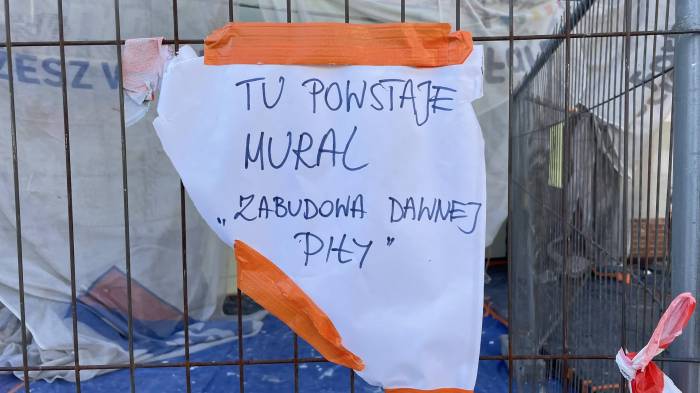 TU POWSTAJE
MURAL
„ZABUDOWA DAWNEJ
PIŁY"